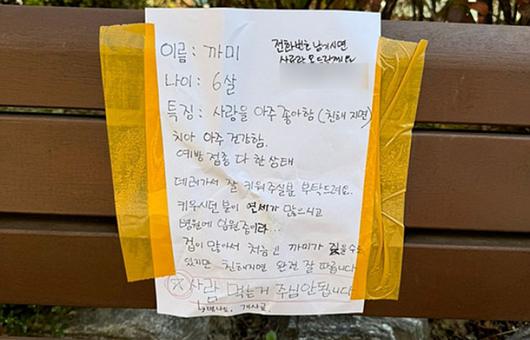 이름 : 까미
전화번호 남기시면
사료랑 모드릴게요
나이 : 6살
특징 : 사람을 아주 좋아함 (친해지면)
치아 아주 건강함.
예방 접종 다 한 상태
데려가서 잘 키워주실분 부탁드려요.
키우시던 분이 연세가 많으시고
병원에 입원중이라..
겁이 많아서 처음엔 까미가 짖을수도
있지만 친해지면 완전 잘 따릅니다
사람 먹는거 주심 안됩니다
개사료